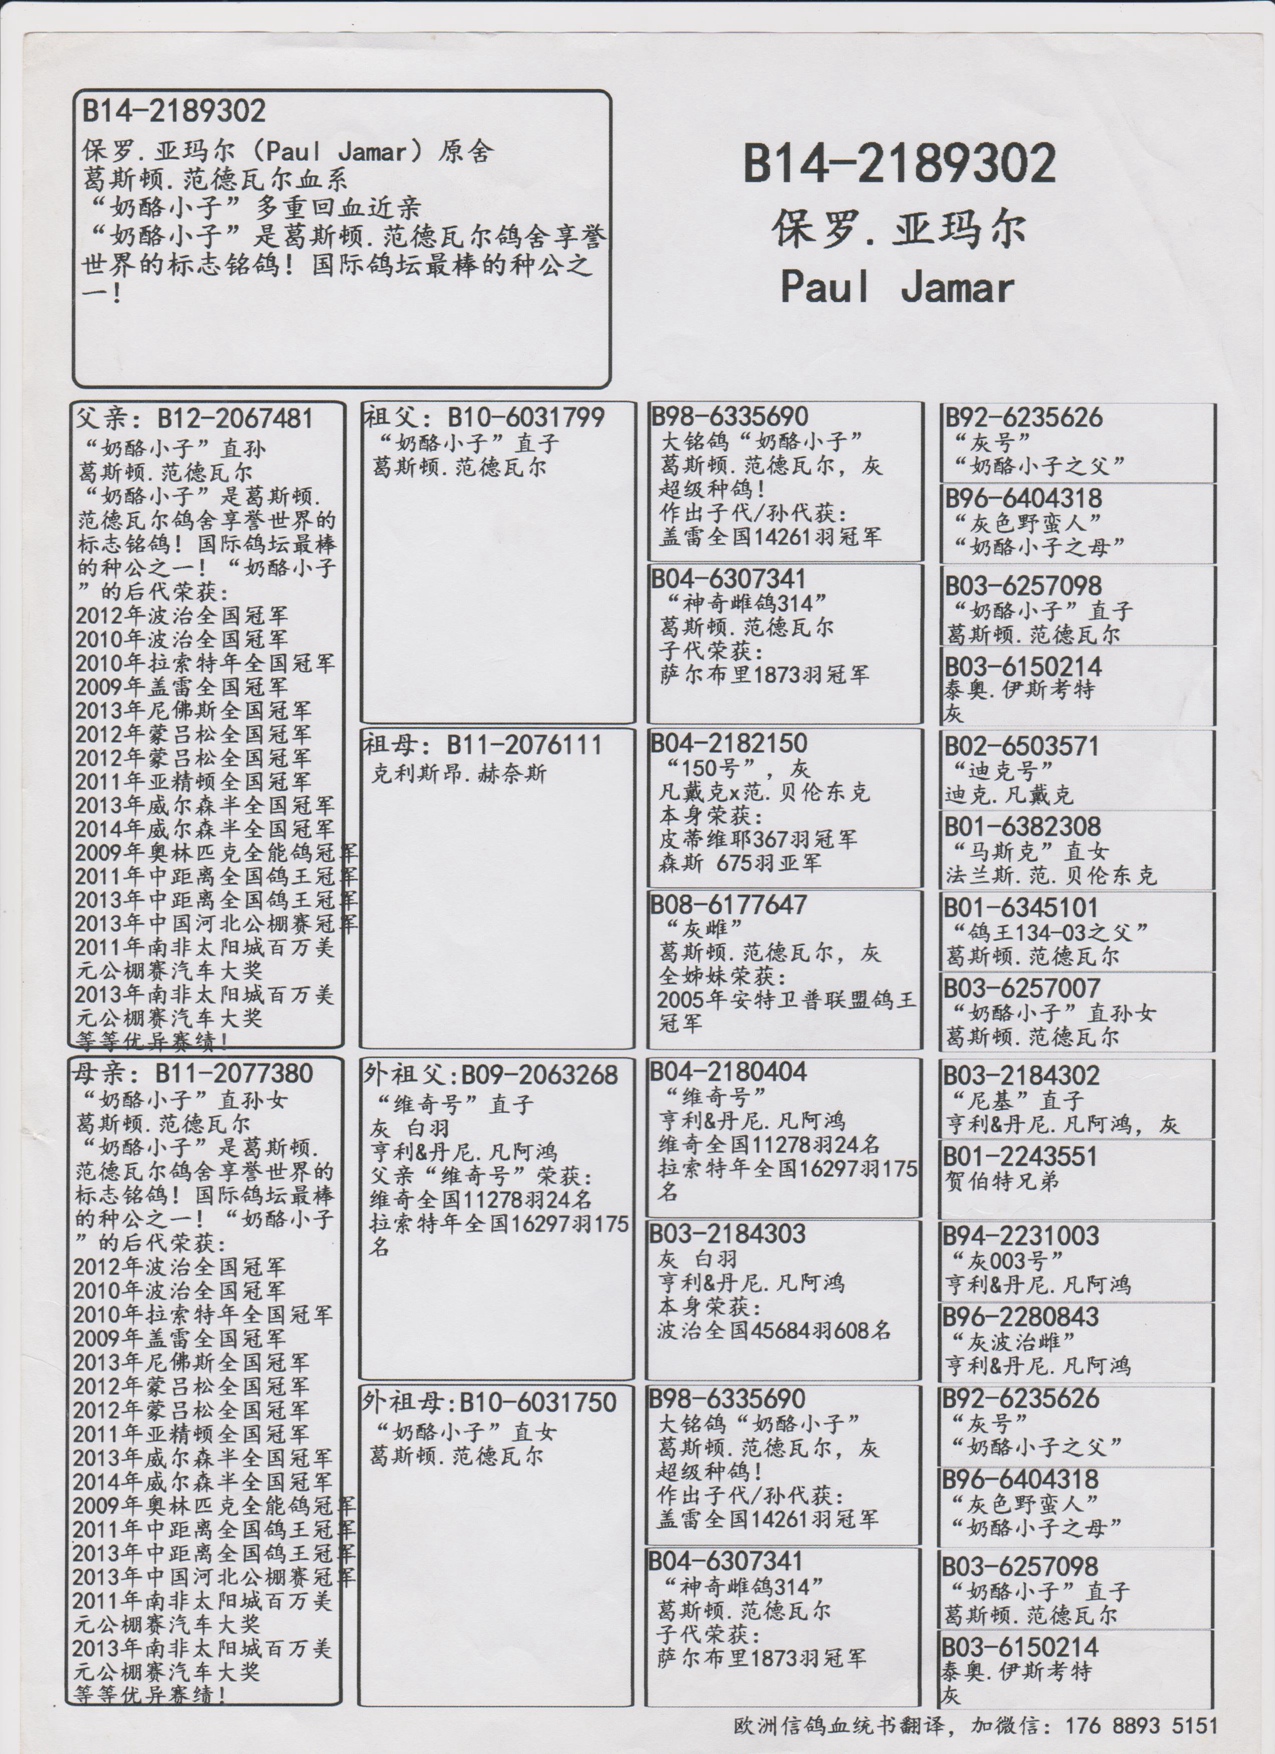 B14-2189302
保罗.亚玛尔（Paul Jamar）原舍
葛斯顿.范德瓦尔血系
“奶酪小子”多重回血近亲
“奶酪小子”是葛斯顿.范德瓦尔鸽舍享誉
世界的标志铭鸽！国际鸽坛最棒的种公之
一！
B14-2189302
保罗.亚玛尔
Paul Jamar
父亲：B12-2067481
“奶酪小子”直孙
葛斯顿.范德瓦尔
“奶酪小子”是葛斯顿.
范德瓦尔鸽舍享誉世界的
标志铭鸽！国际鸽坛最棒
的种公之一！“奶酪小子
”的后代荣获：
2012年波治全国冠军
2010年波治全国冠军
2010年拉索特年全国冠军
2009年盖雷全国冠军
2013年尼佛斯全国冠军
2012年蒙吕松全国冠军
2012年蒙吕松全国冠军
2011年亚精顿全国冠军
2013年威尔森半全国冠军
2014年威尔森半全国冠军
2009年奥林匹克全能鸽冠军
2011年中距离全国鸽王冠军
2013年中距离全国鸽王冠军
2013年中国河北公棚赛冠军
2011年南非太阳城百万美
元公棚赛汽车大奖
2013年南非太阳城百万美
元公棚赛汽车大奖
等等优异赛绩！
母亲：B11-2077380
“奶酪小子”直孙女
葛斯顿.范德瓦尔
“奶酪小子”是葛斯顿.
范德瓦尔鸽舍享誉世界的
标志铭鸽！国际鸽坛最棒
的种公之一！“奶酪小子
”的后代荣获：
2012年波治全国冠军
2010年波治全国冠军
2010年拉索特年全国冠军
2009年盖雷全国冠军
2013年尼佛斯全国冠军
2012年蒙吕松全国冠军
2012年蒙吕松全国冠军
2011年亚精顿全国冠军
2013年威尔森半全国冠军
2014年威尔森半全国冠军
2009年奥林匹克全能鸽冠军
2011年中距离全国鸽王冠军
2013年中距离全国鸽王冠军
2013年中国河北公棚赛冠军
2011年南非太阳城百万美
元公棚赛汽车大奖
2013年南非太阳城百万美
元公棚赛汽车大奖
等等优异赛绩！
祖父：B10-6031799
“奶酪小子”直子
葛斯顿.范德瓦尔
祖母：B11-2076111
克利斯昂.赫奈斯
外祖父:B09-2063268
“维奇号”直子
灰 白羽
亨利&丹尼.凡阿鸿
父亲“维奇号”荣获：
维奇全国11278羽24名
拉索特年全国16297羽175
名
外祖母:B10-6031750
“奶酪小子”直女
葛斯顿.范德瓦尔
B98-6335690
大铭鸽“奶酪小子”
葛斯顿.范德瓦尔，灰
超级种鸽！
作出子代/孙代获：
盖雷全国14261羽冠军
B04-6307341
“神奇雌鸽314”
葛斯顿.范德瓦尔
子代荣获：
萨尔布里1873羽冠军
B04-2182150
“150号”，灰
凡戴克x范.贝伦东克
本身荣获：
皮蒂维耶367羽冠军
森斯 675羽亚军
B08-6177647
“灰雌”
葛斯顿.范德瓦尔，灰
全姊妹荣获：
2005年安特卫普联盟鸽王
冠军
B04-2180404
“维奇号”
亨利&丹尼.凡阿鸿
维奇全国11278羽24名
拉索特年全国16297羽175
名
B03-2184303
灰 白羽
亨利&丹尼.凡阿鸿
本身荣获：
波治全国45684羽608名
B98-6335690
大铭鸽“奶酪小子”
葛斯顿.范德瓦尔，灰
超级种鸽！
作出子代/孙代获：
盖雷全国14261羽冠军
B04-6307341
“神奇雌鸽314”
葛斯顿.范德瓦尔
子代荣获：
萨尔布里1873羽冠军
B92-6235626
“灰号”
“奶酪小子之父”
B96-6404318
“灰色野蛮人”
“奶酪小子之母”
B03-6257098
“奶酪小子”直子
葛斯顿.范德瓦尔
B03-6150214
泰奥.伊斯考特
灰
B02-6503571
“迪克号”
迪克.凡戴克
B01-6382308
“马斯克”直女
法兰斯.范.贝伦东克
B01-6345101
“鸽王134-03之父”
葛斯顿.范德瓦尔
B03-6257007
“奶酪小子”直孙女
葛斯顿.范德瓦尔
B03-2184302
“尼基”直子
亨利&丹尼.凡阿鸿，灰
B01-2243551
贺伯特兄弟
B94-2231003
“灰003号”
亨利&丹尼.凡阿鸿
B96-2280843
“灰波治雌”
亨利&丹尼.凡阿鸿
B92-6235626
“灰号”
“奶酪小子之父”
B96-6404318
“灰色野蛮人”
“奶酪小子之母”
B03-6257098
“奶酪小子”直子
葛斯顿.范德瓦尔
B03-6150214
泰奥.伊斯考特
灰
欧洲信鸽血统书翻译，加微信：176 8893 5151